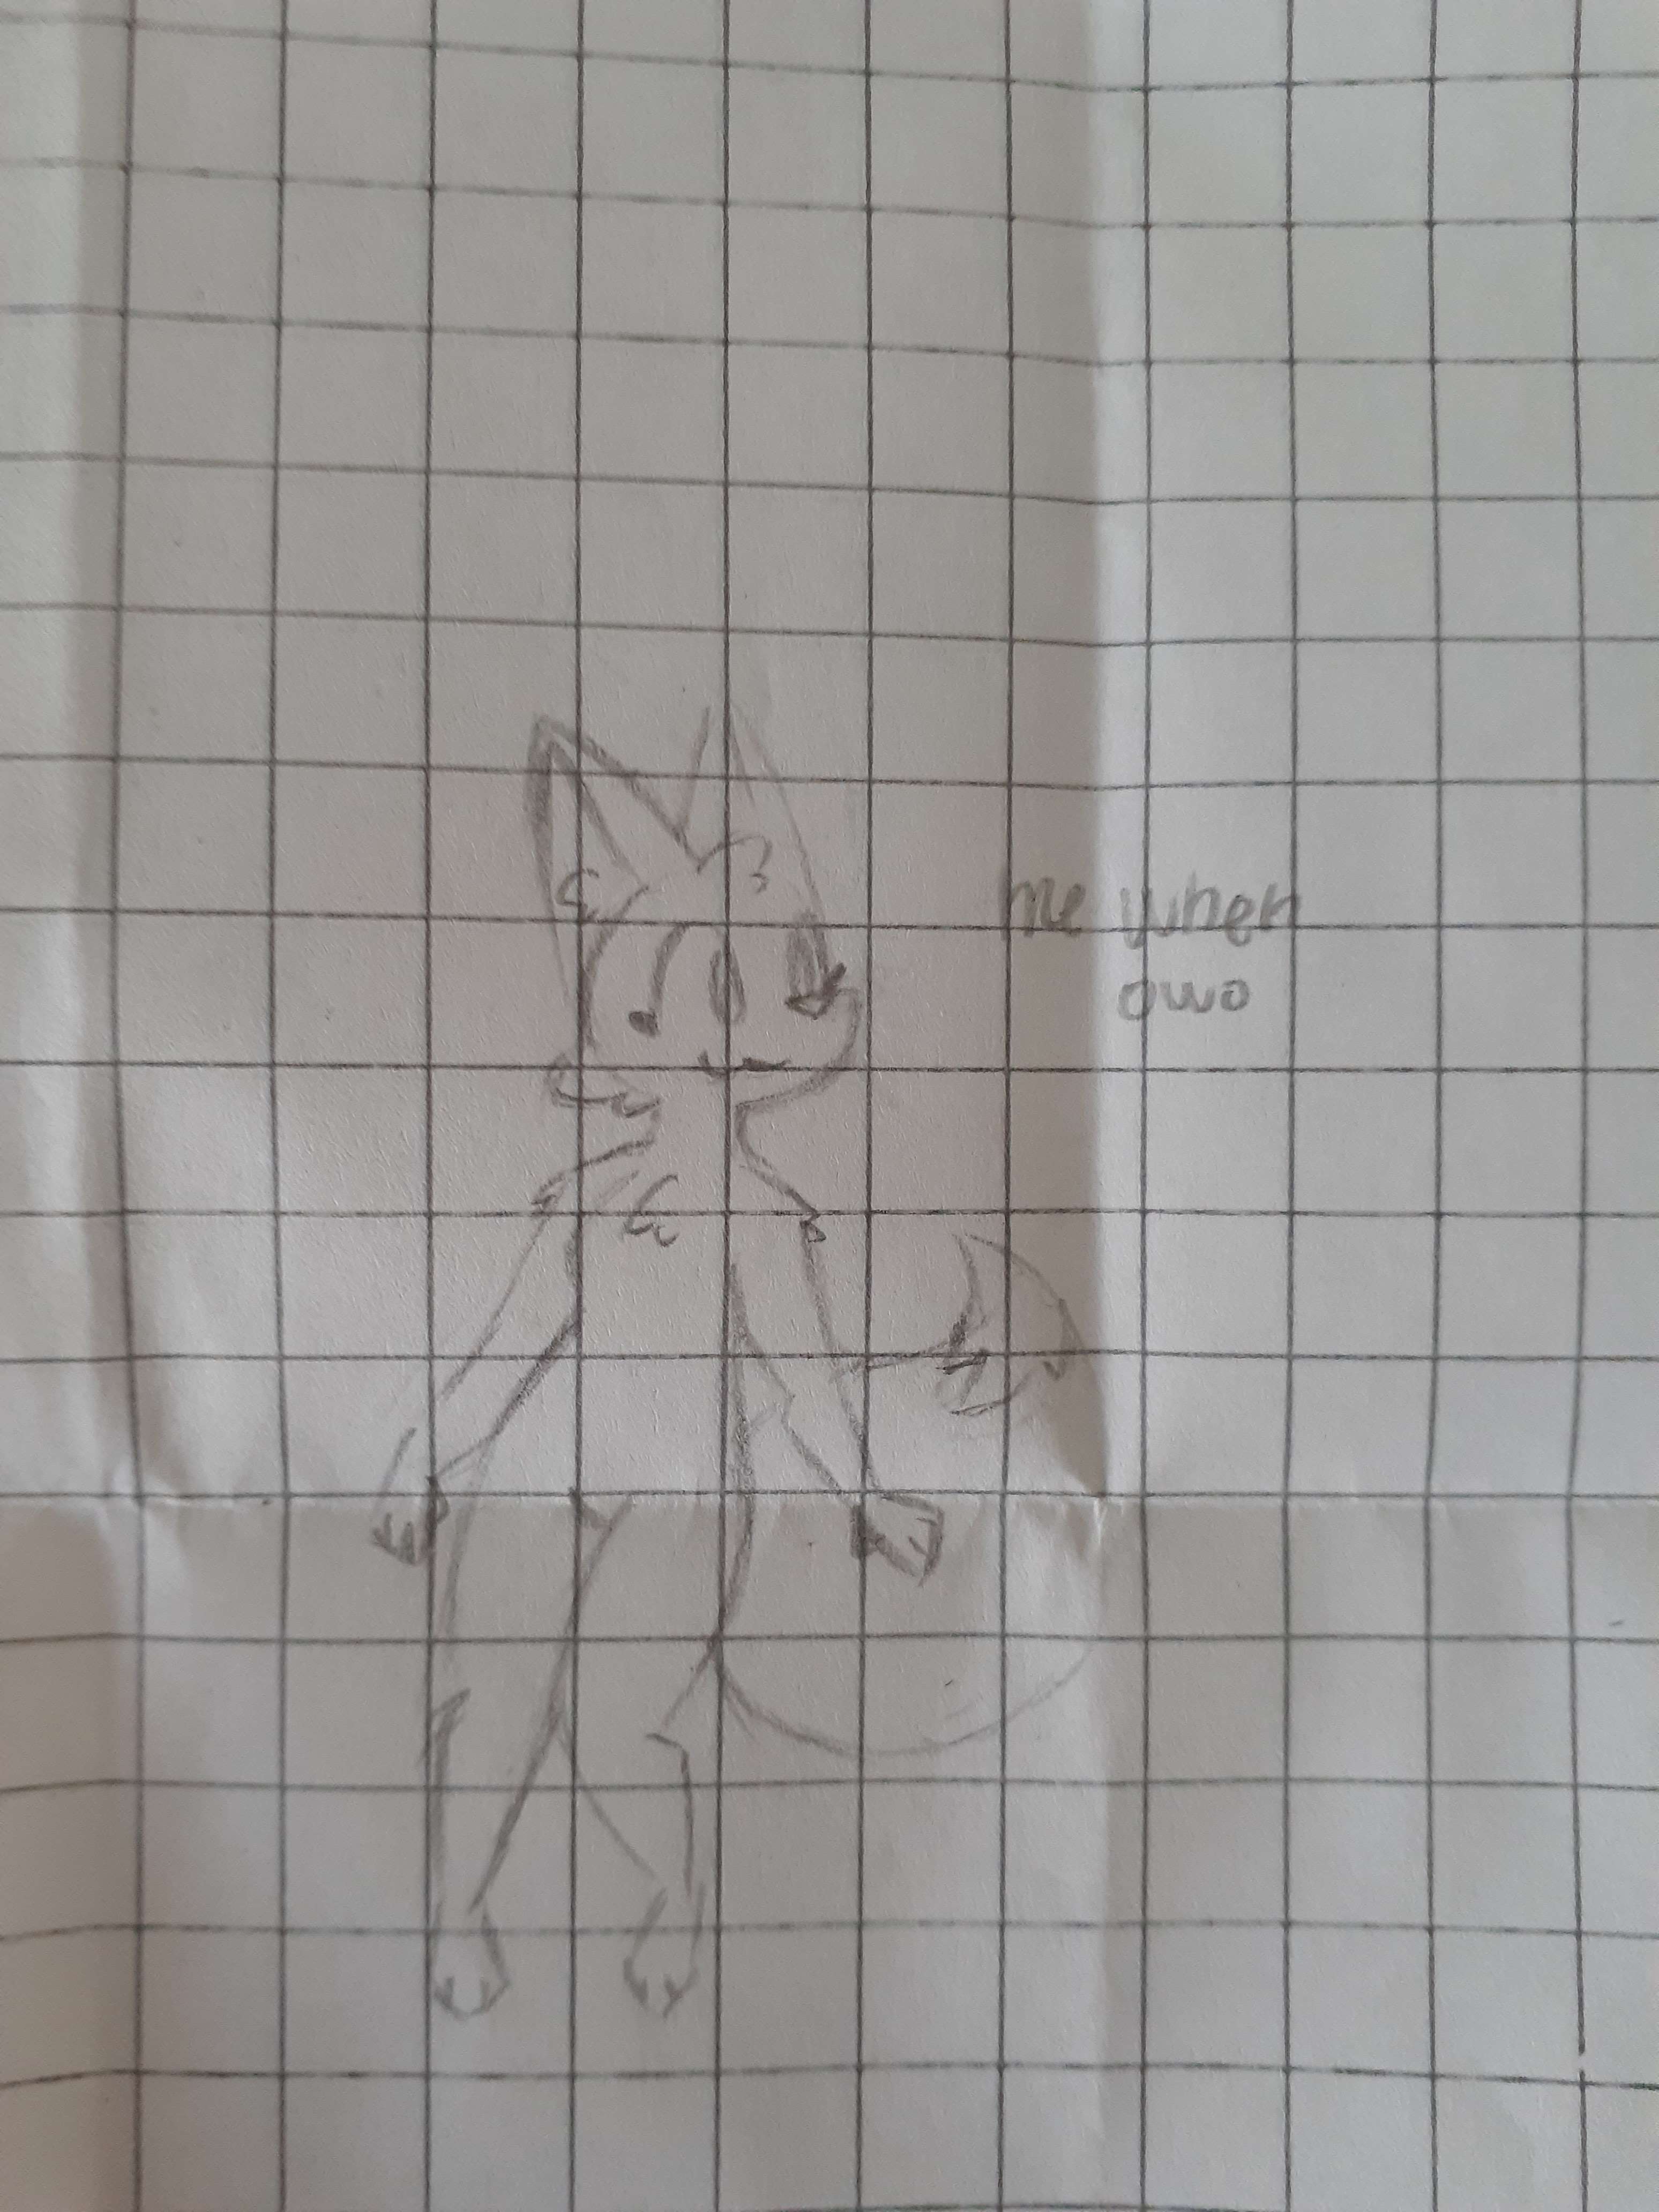 me when
owo